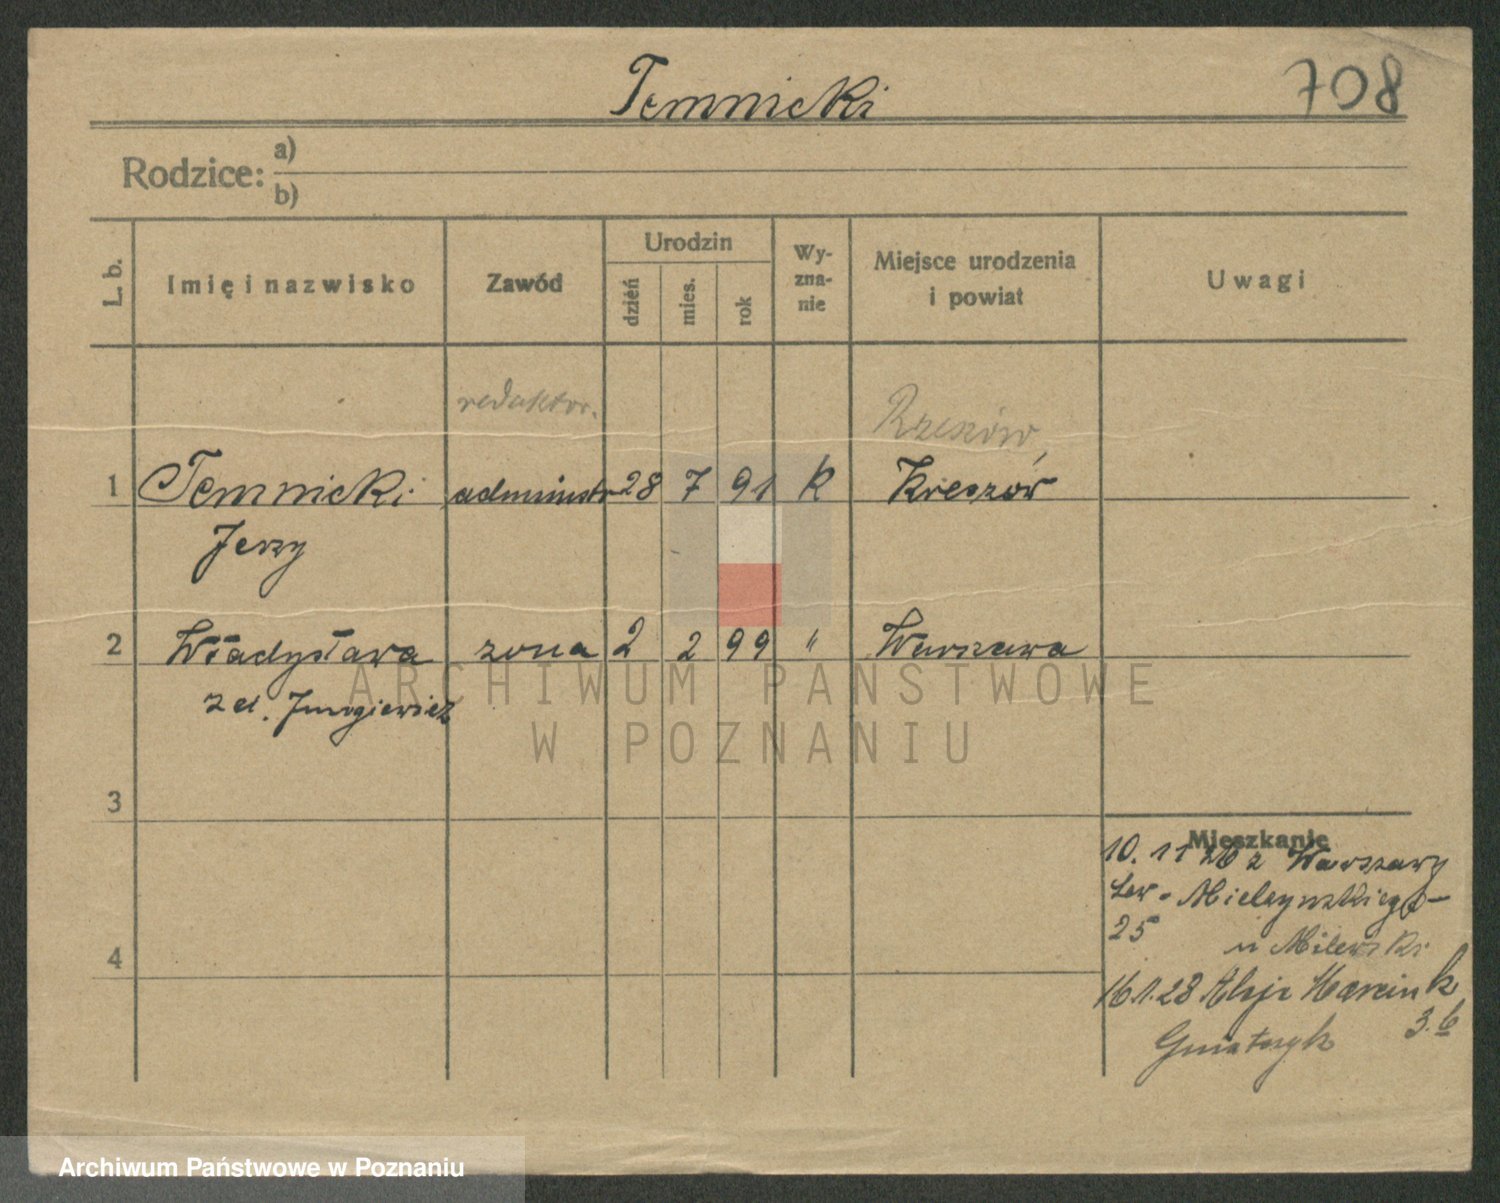 Temnicki
708
Rodzice: a)
b)
L. b.
Imię i nazwisko
Zawód
Urodzin
dzień
mies.
rok
Wy-
zna-
nie
Miejsce urodzenia
i powiat
Uwagi
redaktor.
Rzeszów
1 Temnicki administr 28 7 91 K Krieszów
Jerzy
2 Władysława zona 2 2 99 " Warszawa
z d.
ARCHIWUM PAŃSTWOWE
W POZNANIU
3
Mieszkanie
10. 11 26 z Warszawy
Sew. Mielżyńskiego
25 u Milewski
4
16.1.28 Aleje Marcink
3. 6
Gniatczyk
Archiwum Państwowe w Poznaniu